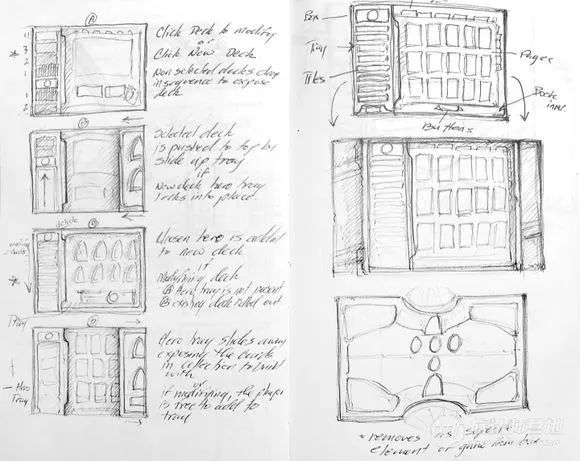 A
Click Deck to modify
or
Click New Deck
Non selected decks drop
in sequence to expose
deck
B
Selected deck
is pushed to top by
slide up tray
if
New deck hero tray
locks into place.
Chosen hero is added
to new deck
if
Modifying deck
Hero tray is not present
existing deck rolled out
Tray
D
Hero tray slides away
exposing the cards
in collection to build
with
or
if modifying, the player
is free to add to
tray
Hero
Tray
Box
Tray
Tiles
Pages
Book
Buttons
removes as separate
element of game from box